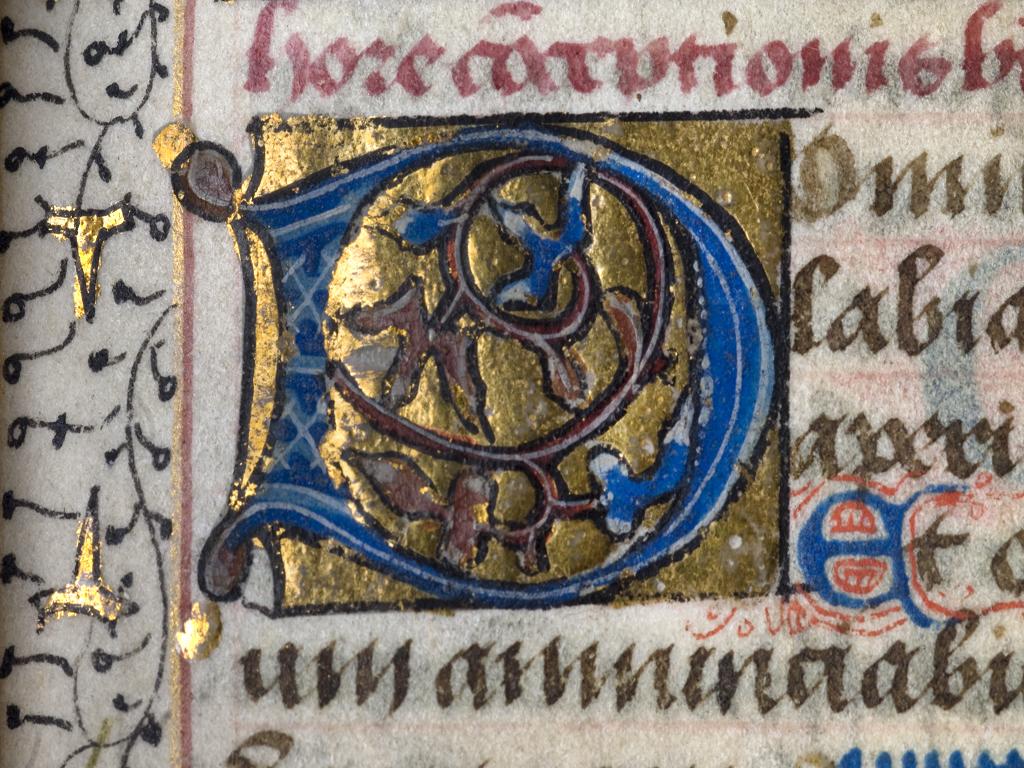 hore cōceptionis b
Domi
labia
aperi
Et o
um annunciabi